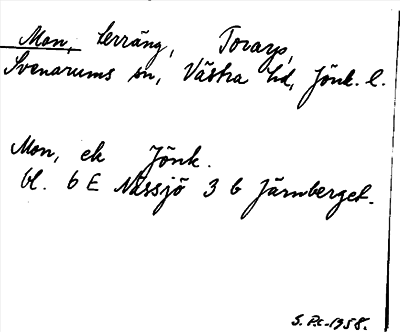 Mon, terräng, Torarp,
Svenarums sn, Västra hd, Jönk. l.
Mon, ek Jönk.
bl. 6 E Nässjö 3 b Järnberget.
S. P.C. 1958.